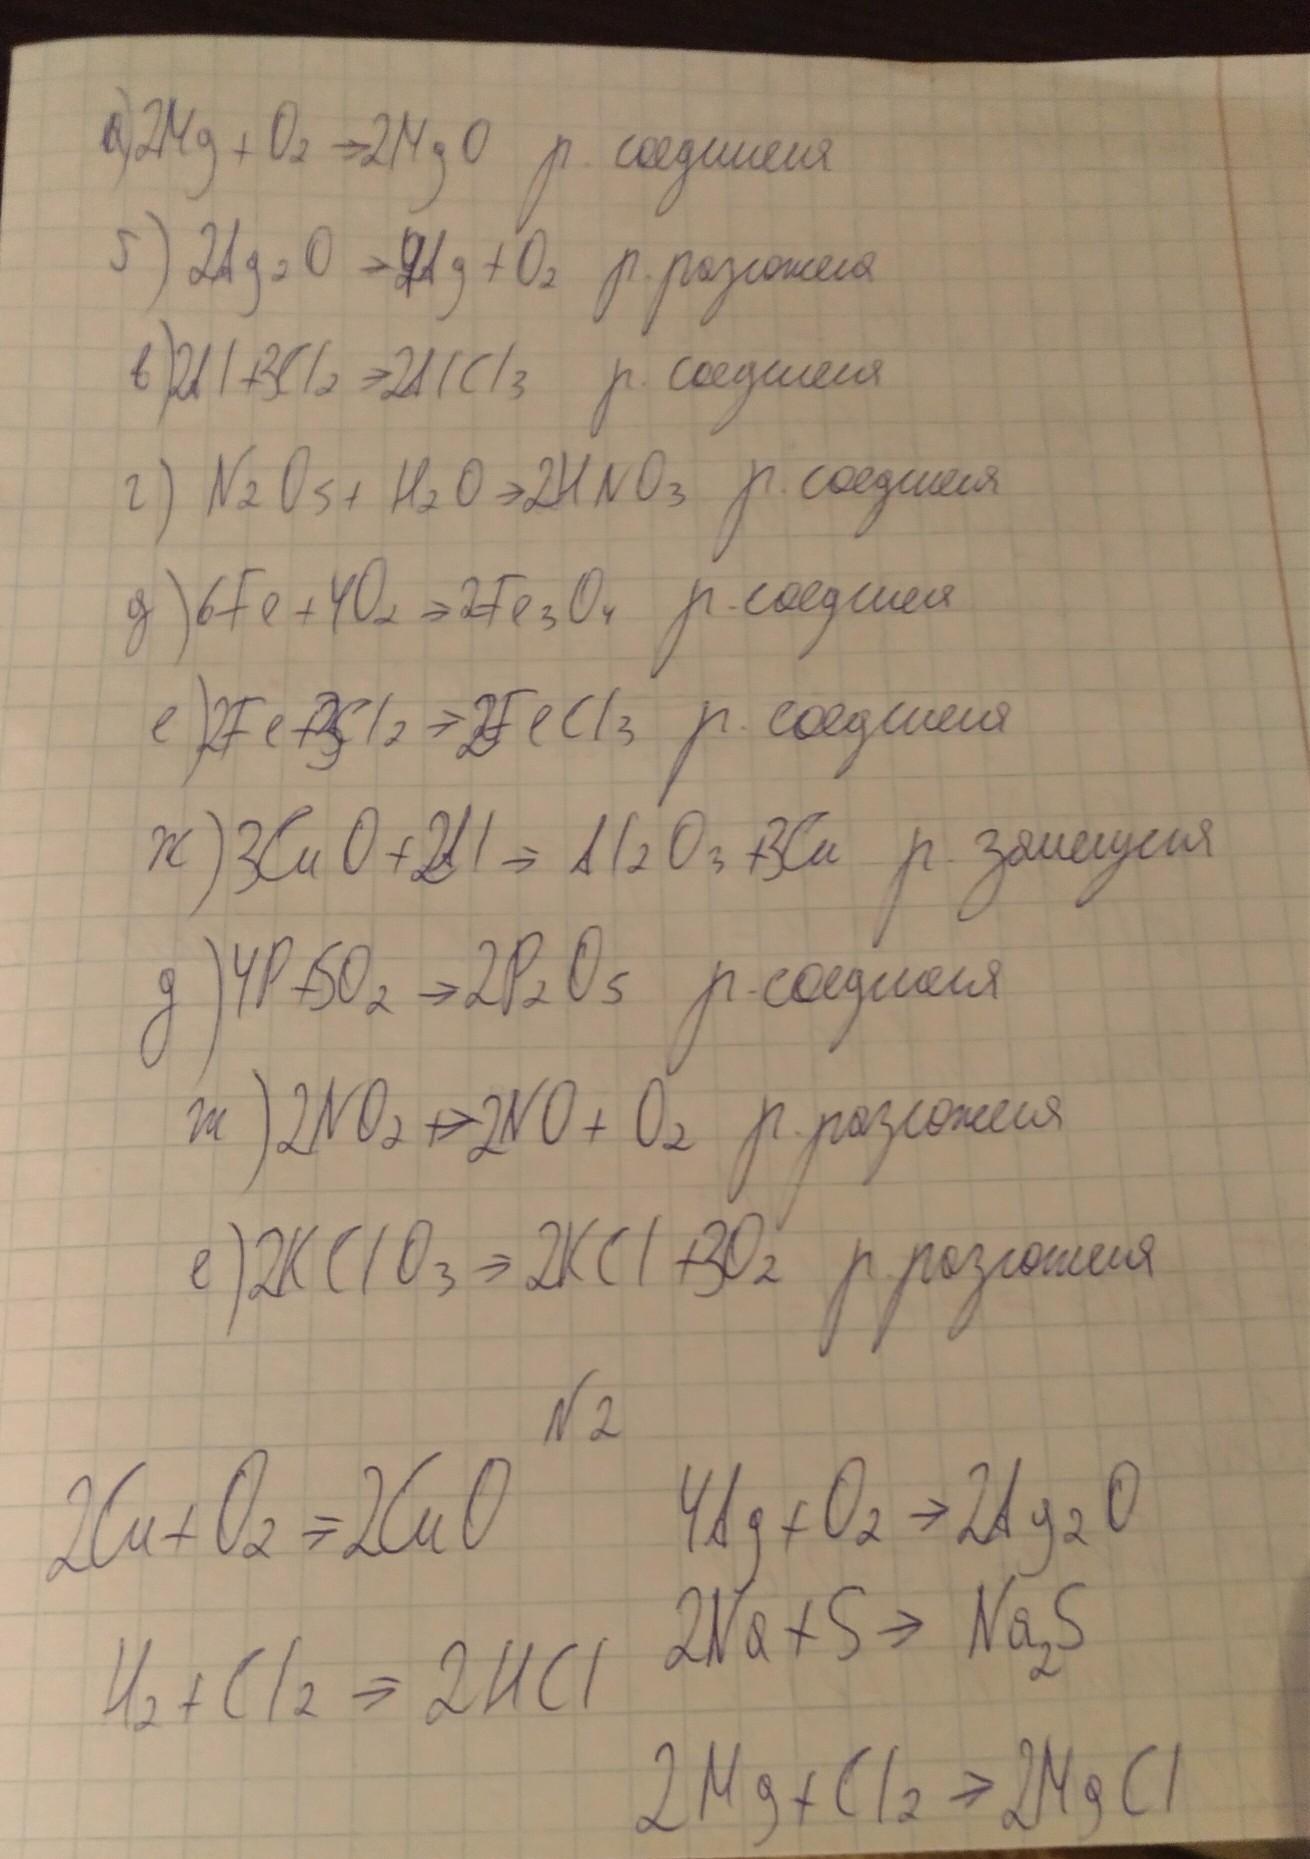 а) 2Mg + O₂ → 2MgO р. соединеня
б) 2Ag₂O → 4Ag + O₂ р. разложеня
в) 2Al + 3Cl₂ → 2AlCl₃ р. соединеня
г) N₂O₅ + H₂O → 2HNO₃ р. соединеня
д) 6Fe + 4O₂ → 2Fe₃O₄ р. соединея
е) 2Fe + 3Cl₂ → 2FeCl₃ р. соединеня
ж) 3CuO + 2Al → Al₂O₃ + 3Cu р. замещеня
д) 4P + 5O₂ → 2P₂O₅ р. соединеня
ж) 2NO₂ → 2NO + O₂ р. разложеня
е) 2KClO₃ → 2KCl + 3O₂ р. разложеня
N2
2Cu + O₂ → 2CuO
H₂ + Cl₂ → 2HCl
4Ag + O₂ → 2Ag₂O
2Na + S → Na₂S
2Mg + Cl₂ → 2MgCl